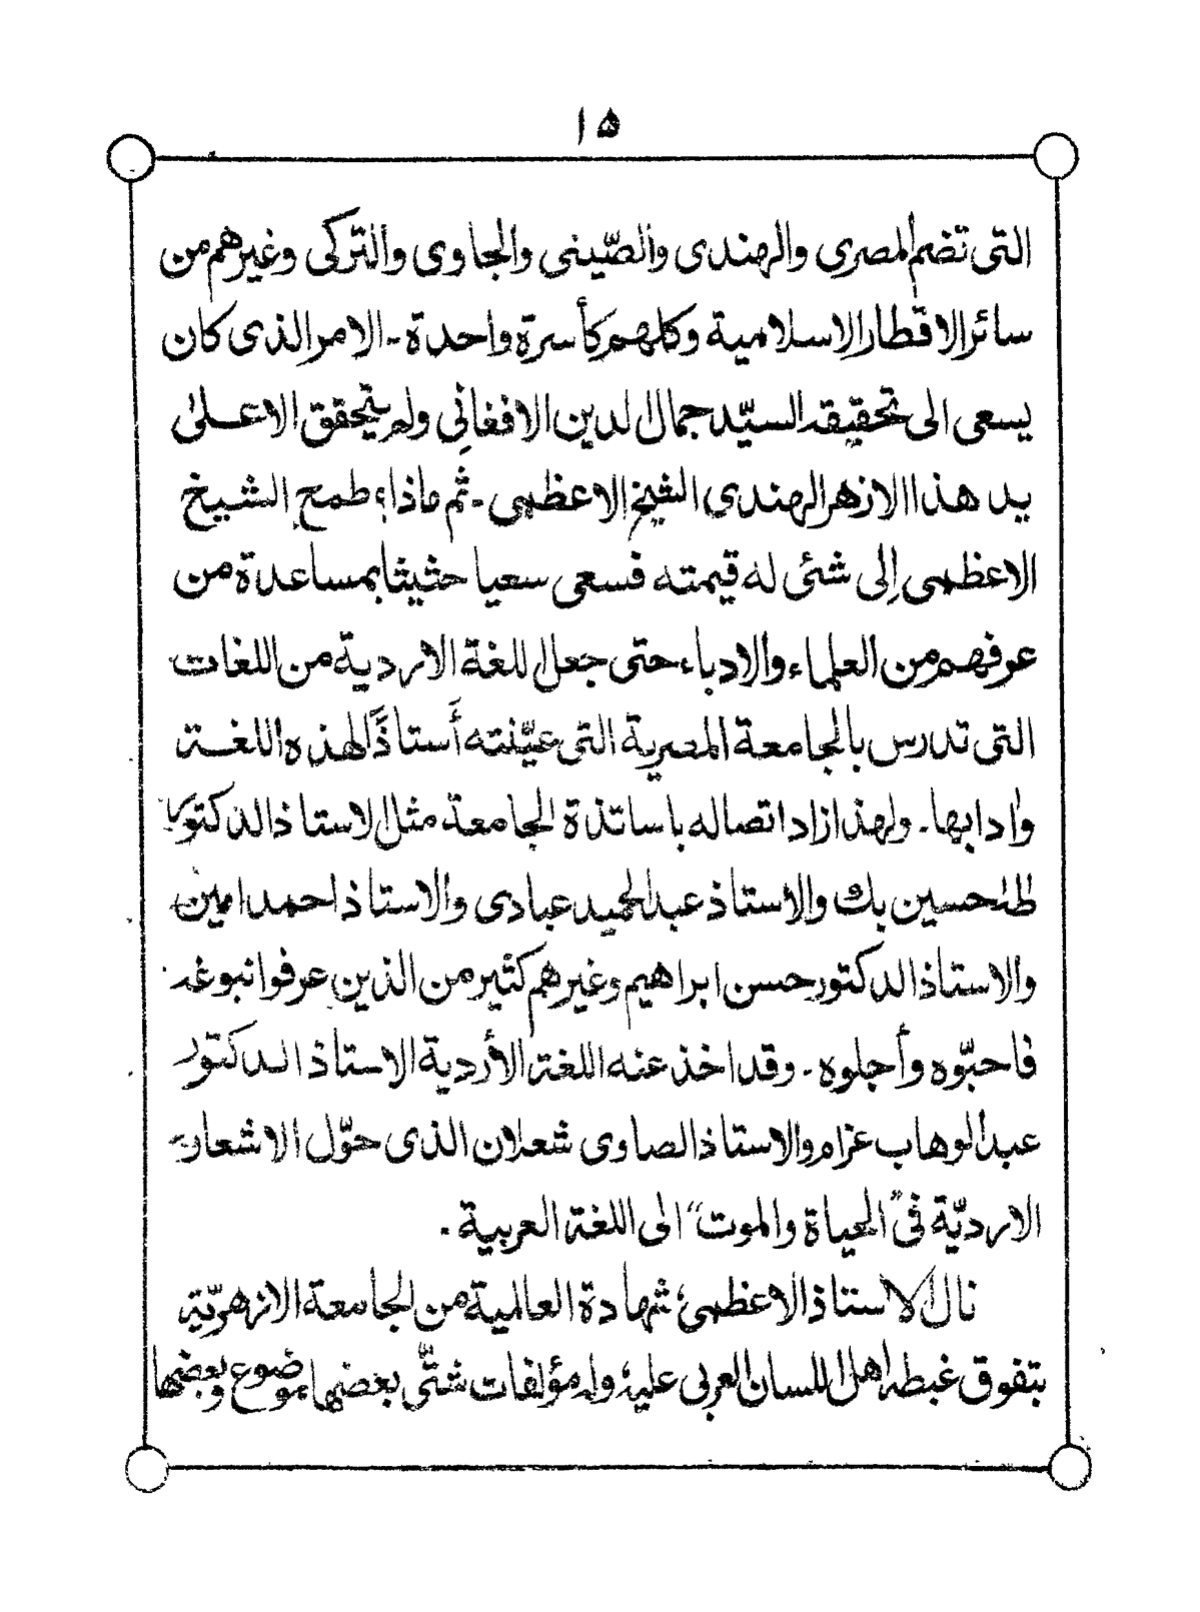 ١٥
التى تضم المصرى والهندى والصّينى والجاوى والتركى وغيرهم من
سائر الاقطار الاسلامية وكلهم كأسرة واحدة ـ الامر الذى كان
يسعى الى تحقيقه السيّد جمال الدين الافغانِي ولم يتحقق الا علىٰ
يد هذا الازهر الهندى الشيخ الاعظمى ـ ثم ماذا؟ طمح الشيخ
الاعظمى إلى شئى له قيمته فسعى سعيا حثيثا بمساعدة من
عرفهم من العلماء والادباء حتى جعل للغة الاردية من اللغات
التى تدرس بالجامعة المصرية التى عيّنته أَستاذَاً لهذه اللغة
وادابها ـ ولهذا زاد اتصاله باساتذة الجامعة مثل لاستاذ الدكتور
طٰهٰ حسين بك والاستاذ عبد الحميد عبادى والاستاذ احمد امين
والاستاذ الدكتور حسن ابراهيم وغيرهم كثير من الذين عرفوا نبوغه
فاحبّوه وأجلوه ـ وقد اخذ عنه اللغة الأردية الاستاذ الدكتور
عبد الوهاب عزام والاستاذ الصاوى شعلان الذى حوّل الاشعار
الارديّة فى "الحياة والموت" الى اللغة العربية .
نال الاستاذ الاعظمى؛ شهادة العالمية من الجامعة الازهريّة
بتفوق غبطه اهل اللسان العربى عليه؛ وله مؤلفات شتّى بعضها موضوع وبعضها